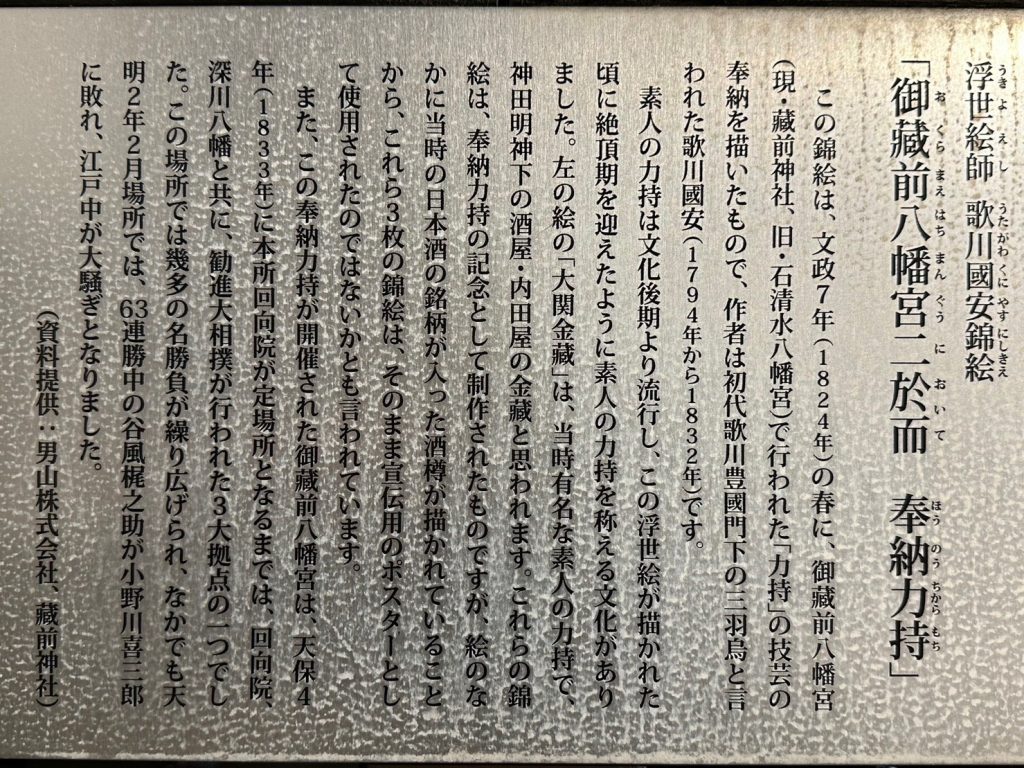 浮世絵師 歌川國安錦絵
うきよえし うたがわくにやすにしきえ
「御蔵前八幡宮二於而 奉納力持」
おくらまえはちまんぐうにおいて ほうのうちからもち
この錦絵は、文政7年(1824年)の春に、御蔵前八幡宮
(現・蔵前神社、旧・石清水八幡宮)で行われた「力持」の技芸の
奉納を描いたもので、作者は初代歌川豊國門下の三羽烏と言
われた歌川國安(1794年から1832年)です。
素人の力持は文化後期より流行し、この浮世絵が描かれた
頃に絶頂期を迎えたように素人の力持を称える文化があり
ました。左の絵の「大関金蔵」は、当時有名な素人の力持で、
神田明神下の酒屋・内田屋の金蔵と思われます。これらの錦
絵は、奉納力持の記念として制作されたものですが、絵のな
かに当時の日本酒の銘柄が入った酒樽が描かれていること
から、これら3枚の錦絵は、そのまま宣伝用のポスターとし
て使用されたのではないかとも言われています。
また、この奉納力持が開催された御蔵前八幡宮は、天保4
年(1833年)に本所回向院が定場所となるまでは、回向院、
深川八幡と共に、勧進大相撲が行われた3大拠点の一つでし
た。この場所では幾多の名勝負が繰り広げられ、なかでも天
明2年2月場所では、63連勝中の谷風梶之助が小野川喜三郎
に敗れ、江戸中が大騒ぎとなりました。
(資料提供:男山株式会社、蔵前神社)